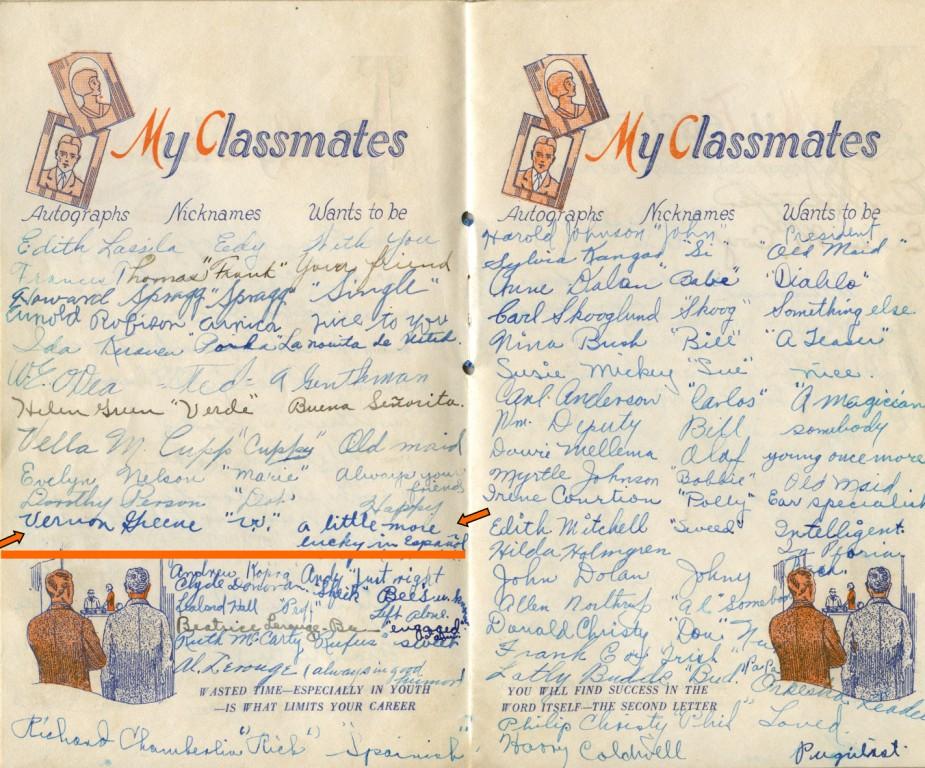 My Classmates
Autographs Nicknames Wants to be
Edith Lassila Eedy With you
Frances Thomas "Frank" Your friend
Howard Spragg "Spragg" "Single"
Arnold Robison Arnica nice to you
Ida "La novita de
W.E. O'Dea - Ted - A Gentleman
Helen Green "Verde" Buena Señorita.
Vella M. Cupp "Cuppy" Old maid
Evelyn Nelson "Marie" Always your friend
Dorothy Person "Dot" Happy
Vernon Greene "W." a little more
lucky in Español
Andrew Kopra Andy "Just right
Clyde Donovan "Sheik" Bees
Leland Hall "Pat" Left alone.
Beatrice "engaged"
Ruth McCarty Rufus
Al. Lerouge (always in good humor)
WASTED TIME—ESPECIALLY IN YOUTH
—IS WHAT LIMITS YOUR CAREER
Richard Chamberlin "Rich" "Spainish"
My Classmates
Autographs Nicknames Wants to be
Harold Johnson "John" President
Sylvia Kangas "Si" "Old Maid"
Anne Dalan "Babe" "Diablo"
Carl Skooglund "Skoog" Something else
Nina Bush "Bill" "A Teaser"
Susie Mickey "Sue" nice.
Carl Anderson "Carlos" "A magician
Wm. Deputy Bill somebody
Mellema Olaf young once more
Myrtle Johnson "Bobbie" Old Maid
Irene Courtion "Polly" Ear specialist
Edith Mitchell "Sweed" Intelligent.
Hilda Holmgren In
John Dolan Johny
Allen Northrup "Al" Somebody
Donald Christy "Don"
Frank
Budds "Bud."
Orkestra Leader
YOU WILL FIND SUCCESS IN THE
WORD ITSELF—THE SECOND LETTER
Philip Christy "Phil" Loved
Harry Coldwell Pugilist.